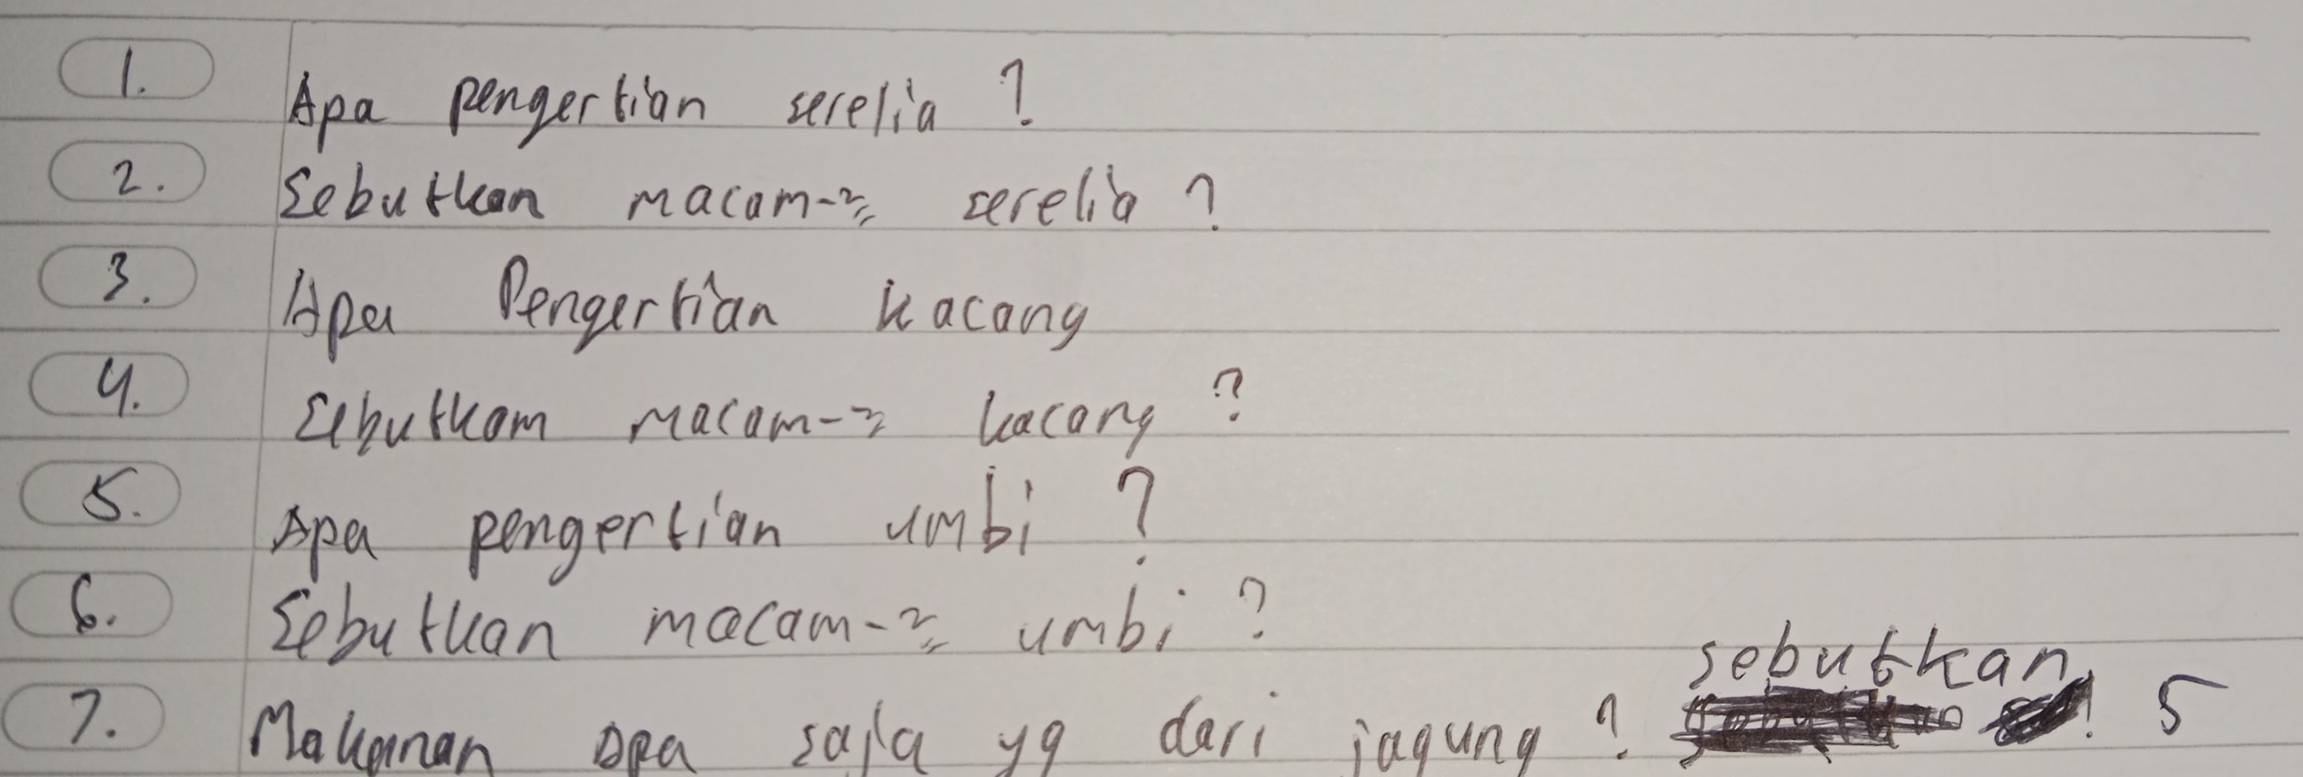 1. Apa pengertian serelia ?
2. Sebutkan macam-2 serelia ?
3. Apa Pengertian kacang
4. Sebutkam macam-2 kacang ?
5. Apa pengertian umbi ?
6. Sebutkan macam-2 umbi ?
7. Makanan apa saja yg dari jagung ? sebutkan ! 5